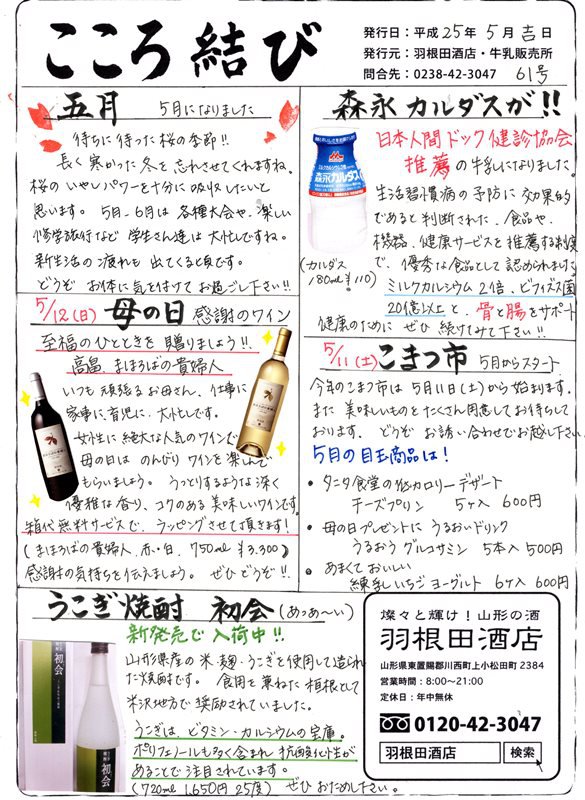 こころ結び
発行日：平成25年5月吉日
発行元：羽根田酒店・牛乳販売所
問合先：0238-42-3047 61号
五月 5月になりました
待ちに待った桜の季節!!
長く寒かった冬を忘れさせてくれますね。
桜のいやしパワーを十分に吸収したいと
思います。5月、6月は各種大会や、楽しい
修学旅行など学生さん達は大忙しですね。
新生活の疲れも出てくる頃です。
どうぞお体に気を付けてお過ごし下さい!!
森永カルダスが!!
日本人間ドック健診協会
推薦の牛乳になりました。
生活習慣病の予防に効果的
であると判断された、食品や、
機器、健康サービスを推薦する制度
で、優秀な食品として認められました
ミルクカルシウム2倍、ビフィズス菌
20億以上と、骨と腸をサポート
健康のためにぜひ続けてみて下さい!!
森永カルダス
(カルダス
180ml ¥110)
5/12(日) 母の日 感謝のワイン
至福のひとときを贈りましょう!!
高畠、まほろばの貴婦人
いつも頑張るお母さん、仕事に
家事に育児に、大忙しです。
女性に絶大な人気のワインで
母の日は のんびりワインを楽しんで
もらいましょう。うっとりするような深く
優雅な香り、コクのある美味しいワインです。
箱代無料サービスで、ラッピングさせて頂きます!
(まほろばの貴婦人、赤・白、750ml ¥3,300)
感謝の気持ちを伝えましょう。ぜひどうぞ!!
5/11(土) こまつ市 5月からスタート
今年のこまつ市は5月11日(土)から始まります。
また美味しいものをたくさん用意してお待ちして
おります。どうぞお誘い合わせでお越し下さい
5月の目玉商品は!
・タニタ食堂の低カロリーデザート
チーズプリン 5ヶ入 600円
・母の日プレゼントに うるおいドリンク
うるおう グルコサミン 5本入 500円
・あまくておいしい
練乳いちごヨーグルト 6ヶ入 600円
うこぎ焼酎 初会(あっあ〜い)
新発売で入荷中!!
山形県産の米・麹・うこぎを使用して造られ
た焼酎です。食用を兼ねた垣根として
米沢地方で奨励されていました。
うこぎは、ビタミン・カルシウムの宝庫。
ポリフェノールも多く含まれ抗酸化性が
あることで注目されています。
(720ml 1,650円 25度) ぜひおためし下さい。
初会
燦々と輝け！山形の酒
羽根田酒店
山形県東置賜郡川西町上小松田町2384
営業時間：8:00〜21:00
定休日：年中無休
0120-42-3047
羽根田酒店 検索